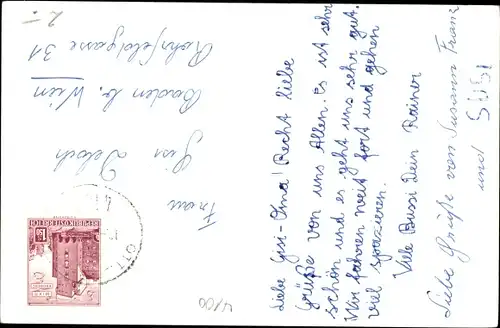 Liebe Gisi-Oma! Recht liebe
Grüße von uns Allen. Es ist sehr
schön und es geht uns sehr gut.
Wir fahren weit fort und gehen
viel spazieren.
Viele Bussi Dein Rainer
Liebe Grüße von Susann Franz
und SUSI
Frau
Gisi
Baden b. Wien
31
2.-
REPUBLIK ÖSTERREICH
4/00